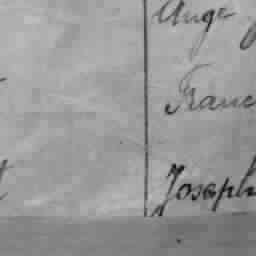 Ange
Franc
Joseph